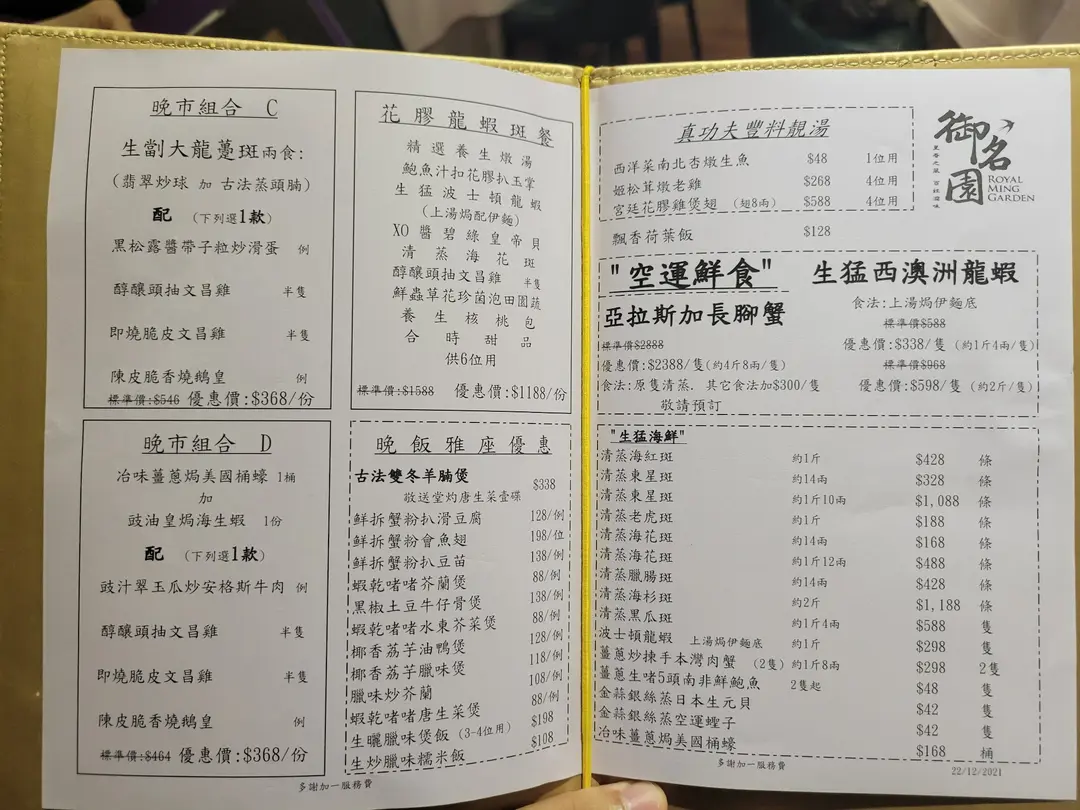 晚市組合 C
生劏大龍躉斑兩食:
(翡翠炒球 加 古法蒸頭腩)
配 (下列選1款)
黑松露醬帶子粒炒滑蛋 例
醇釀頭抽文昌雞 半隻
即燒脆皮文昌雞 半隻
陳皮脆香燒鵝皇 例
標準價:$546 優惠價:$368/份
晚市組合 D
冶味薑蔥焗美國桶蠔 1桶
加
豉油皇焗海生蝦 1份
配 (下列選1款)
豉汁翠玉瓜炒安格斯牛肉 例
醇釀頭抽文昌雞 半隻
即燒脆皮文昌雞 半隻
陳皮脆香燒鵝皇 例
標準價:$464 優惠價:$368/份
花膠龍蝦斑餐
精選養生燉湯
鮑魚汁扣花膠扒玉掌
生猛波士頓龍蝦
(上湯焗配伊麵)
XO醬碧綠皇帝貝
清蒸海花斑
醇釀頭抽文昌雞 半隻
鮮蟲草花珍菌泡田園蔬
養生核桃包
合時甜品
供6位用
標準價:$1588 優惠價:$1188/份
晚飯雅座優惠
古法雙冬羊腩煲 $338
敬送堂灼唐生菜壹碟
鮮拆蟹粉扒滑豆腐 128/例
鮮拆蟹粉會魚翅 198/位
鮮拆蟹粉扒豆苗 138/例
蝦乾啫啫芥蘭煲 88/例
黑椒土豆牛仔骨煲 138/例
蝦乾啫啫水東芥菜煲 88/例
椰香荔芋油鴨煲 128/例
椰香荔芋臘味煲 118/例
臘味炒芥蘭 108/例
蝦乾啫啫唐生菜煲 88/例
生曬臘味煲飯(3-4位用) $198
生炒臘味糯米飯 $108
多謝加一服務費
真功夫豐料靚湯
西洋菜南北杏燉生魚 $48 1位用
姬松茸燉老雞 $268 4位用
宮廷花膠雞煲翅 (翅8兩) $588 4位用
飄香荷葉飯 $128
御名園
ROYAL
MING
GARDEN
"空運鮮食" 生猛西澳洲龍蝦
亞拉斯加長腳蟹
標準價$2888
優惠價:$2388/隻(約4斤8兩/隻)
食法:原隻清蒸. 其它食法加$300/隻
敬請預訂
食法:上湯焗伊麵底
標準價$588
優惠價:$338/隻 (約1斤4兩/隻)
標準價$968
優惠價:$598/隻 (約2斤/隻)
"生猛海鮮"
清蒸海紅斑 約1斤 $428 條
清蒸東星斑 約14兩 $328 條
清蒸東星斑 約1斤10兩 $1,088 條
清蒸老虎斑 約1斤 $188 條
清蒸海花斑 約14兩 $168 條
清蒸海花斑 約1斤12兩 $488 條
清蒸臘腸斑 約14兩 $428 條
清蒸海杉斑 約2斤 $1,188 條
清蒸黑瓜斑 約1斤4兩 $588 隻
波士頓龍蝦 上湯焗伊麵底 約1斤 $298 隻
薑蔥炒揀手本灣肉蟹 (2隻) 約1斤8兩 $298 2隻
薑蔥生啫5頭南非鮮鮑魚 2隻起 $48 隻
金蒜銀絲蒸日本生元貝 $42 隻
金蒜銀絲蒸空運蟶子 $42 隻
冶味薑蔥焗美國桶蠔 $168 桶
多謝加一服務費
22/12/2021